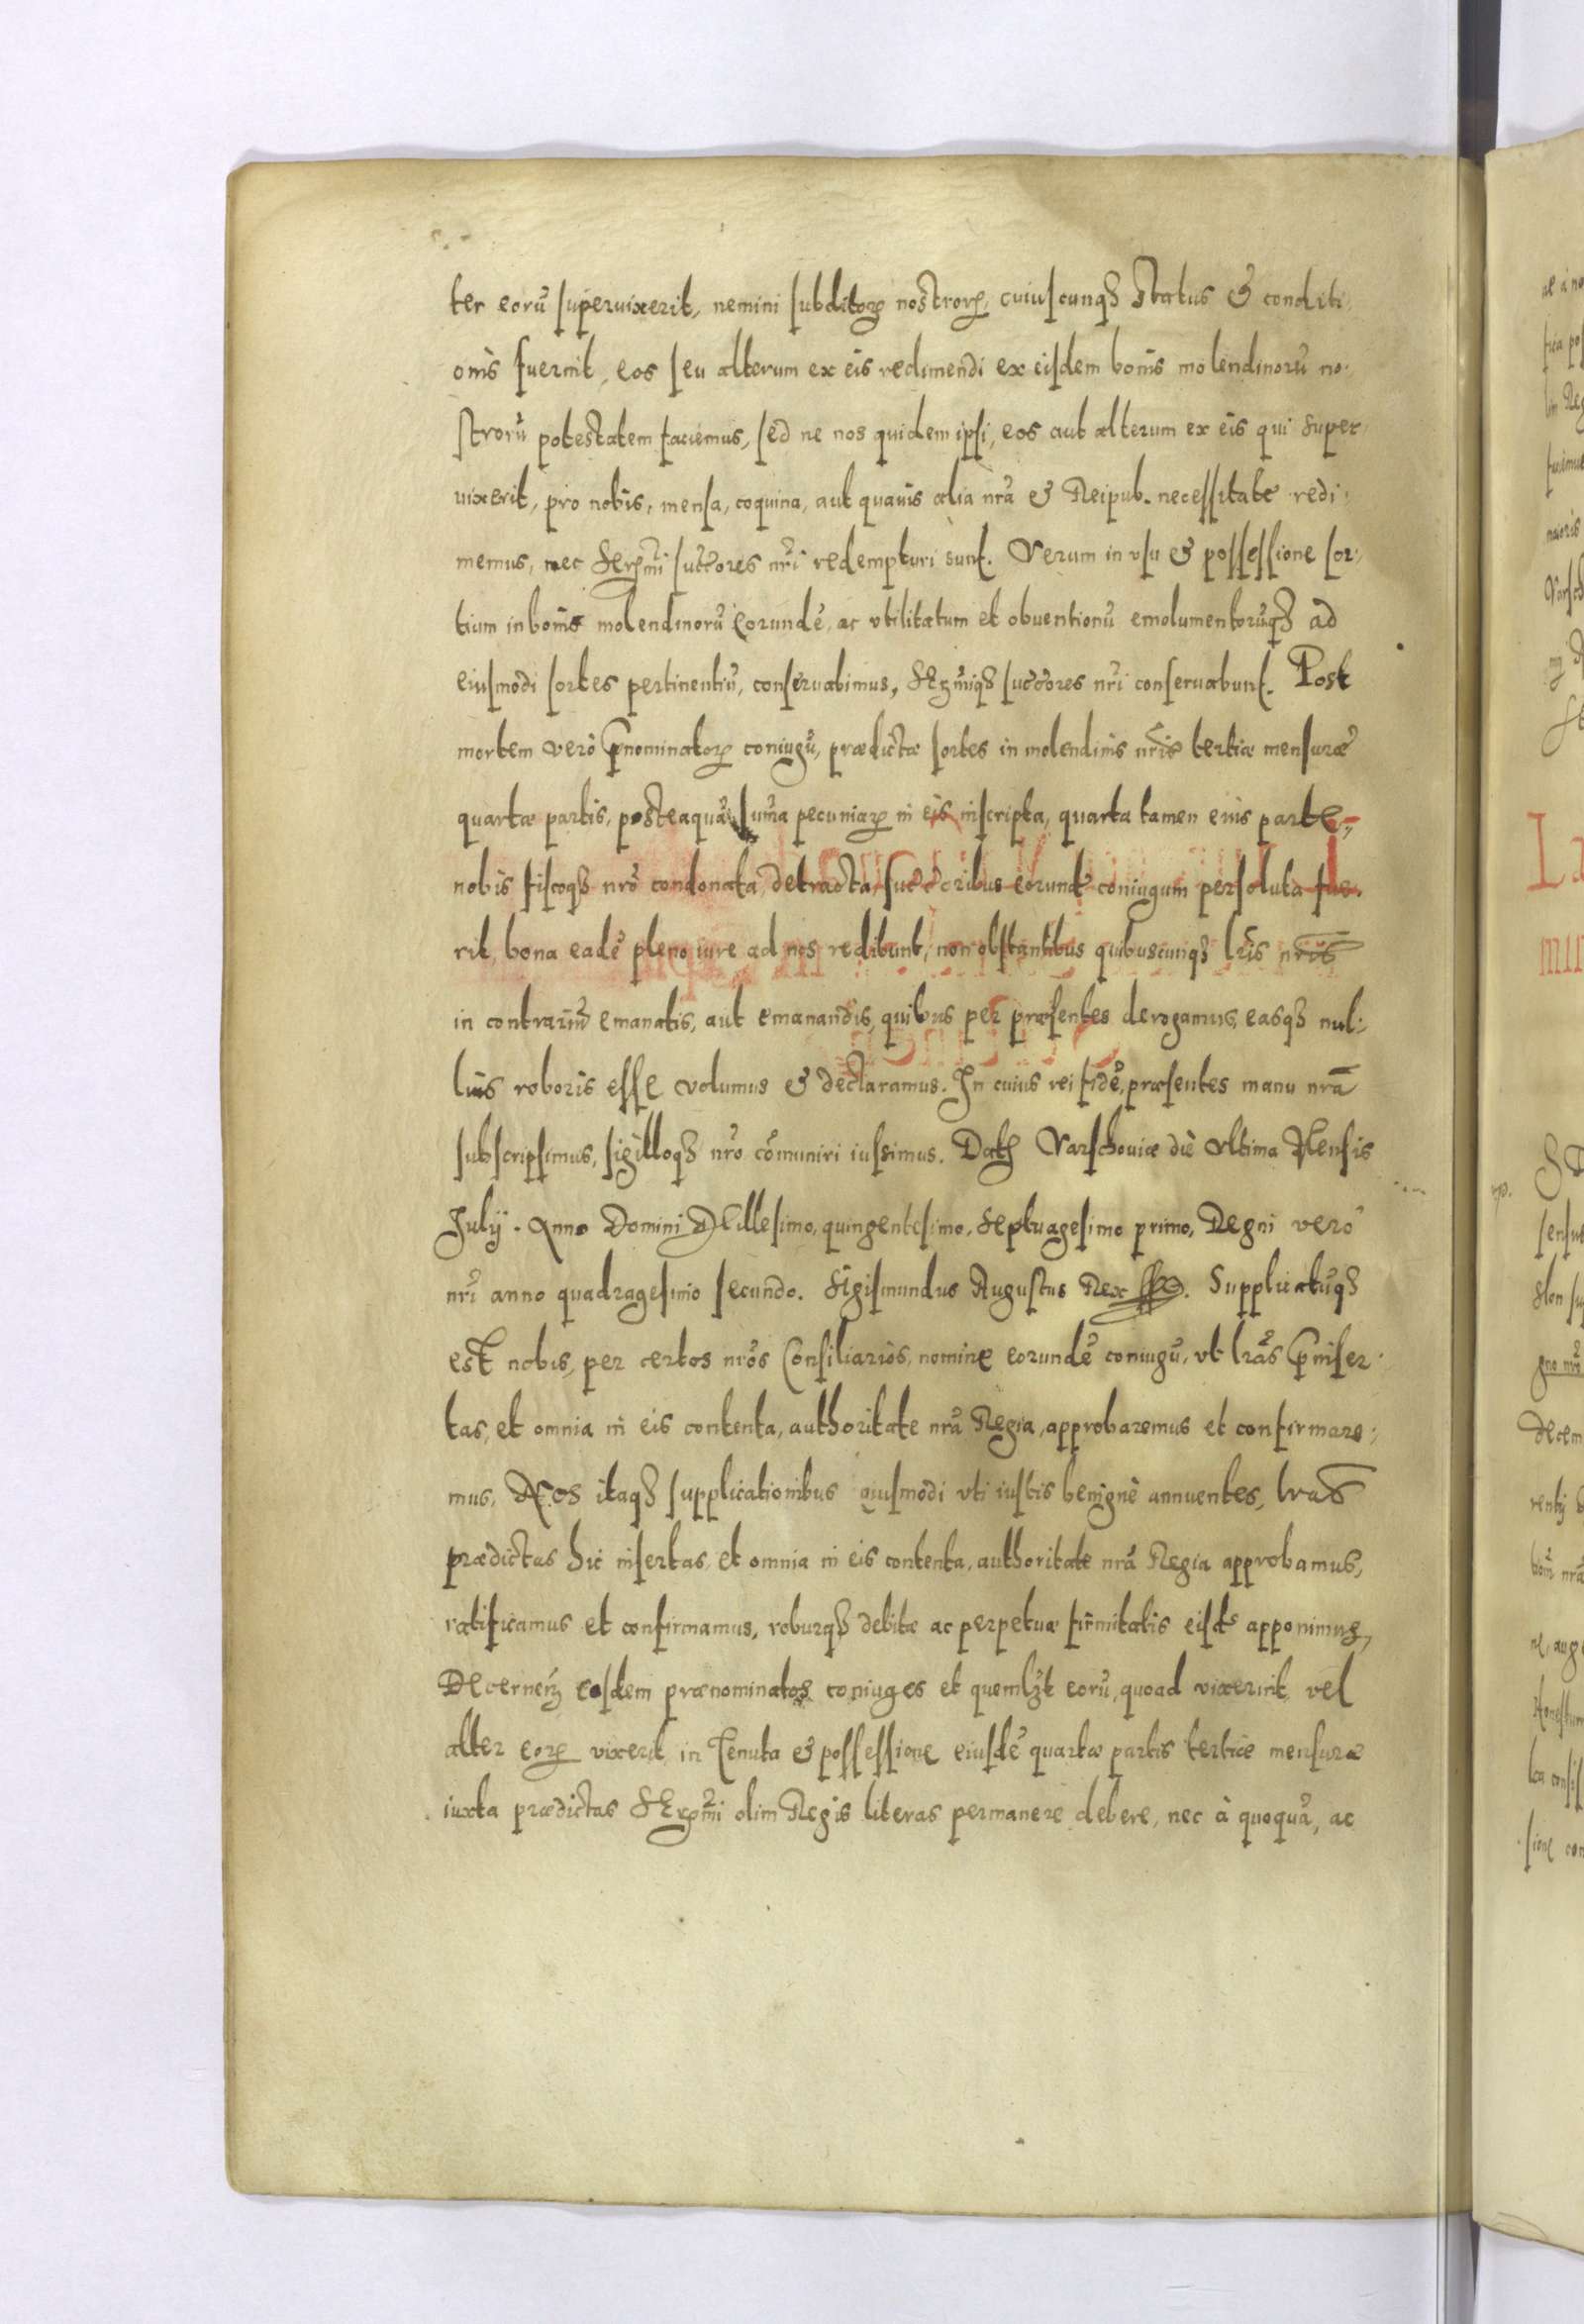 ter eorū superuixerit, nemini subditorꝝ nostrorꝝ, cuiuscunqꝫ status & conditi-
onis fuerint, eos seu alterum ex eis redimendi ex eisdem bonis molendinorū no-
strorū potestatem faciemus, sed ne nos quidem ipsi, eos aut alterum ex eis qui super-
uixerit, pro nobis, mensa, coquina, aut quauis alia nrā & Reipub. necessitate redi-
memus, nec Serꝫmi succōres nrī redempturi sunt. Verum in vsu & possessione sor-
tium in bonis molendinorū eorundē, ac vtilitatum et obuentionū emolumentorūqꝫ ad
eiusmodi sortes pertinentiū, conseruabimus, Serꝫmiqꝫ succōres nrī conseruabunt. Post
mortem verò p̄nominatorꝝ coniugū, prædictæ sortes in molendinis nrīs tertiæ mensuræ
quartæ partis, posteaquā sum̄a pecuniarꝝ in eis inscripta, quarta tamen eius parte,
nobis fiscoqꝫ nrō condonata, detracta, succōribus eorundē coniugum persoluta fue-
rit, bona eadē pleno iure ad nos redibunt, non obstantibus quibuscunqꝫ lrīs nrīs
in contrariū emanatis, aut emanandis, quibus per præsentes derogamus, easqꝫ nul-
lius roboris esse volumus & declaramus. In cuius rei fidē, præsentes manu nrā
subscripsimus, sigilloqꝫ nrō cōmuniri iussimus. Datꝫ Varschouiæ die vltima Mensis
July. Anno Domini Millesimo, quingentesimo, Septuagesimo primo, Regni vero
nrī anno quadragesimo secundo. Sigismundus Augustus Rex sst. Supplicatūqꝫ
est nobis, per certos nrōs Consiliarios, nomine eorundē coniugū, vt lrās p̄inser-
tas, et omnia in eis contenta, authoritate nrā Regia, approbaremus et confirmare-
mus, Nos itaqꝫ supplicationibus eiusmodi vti iustis benignè annuentes, lrās
prædictas hic insertas, et omnia in eis contenta, authoritate nrā Regia approbamus,
ratificamus et confirmamus, roburqꝫ debitæ ac perpetuæ firmitatis eisdē apponimus,
Decernen̄ eosdem prænominatos coniuges et quemlꝫt eorū, quoad vixerint, vel
alter eorꝝ vixerit, in Tenuta & possessione eiusdē quartæ partis tertiæ mensuræ
iuxta prædictas Serꝫmi olim Regis literas permanere debere, nec à quoquā, ac